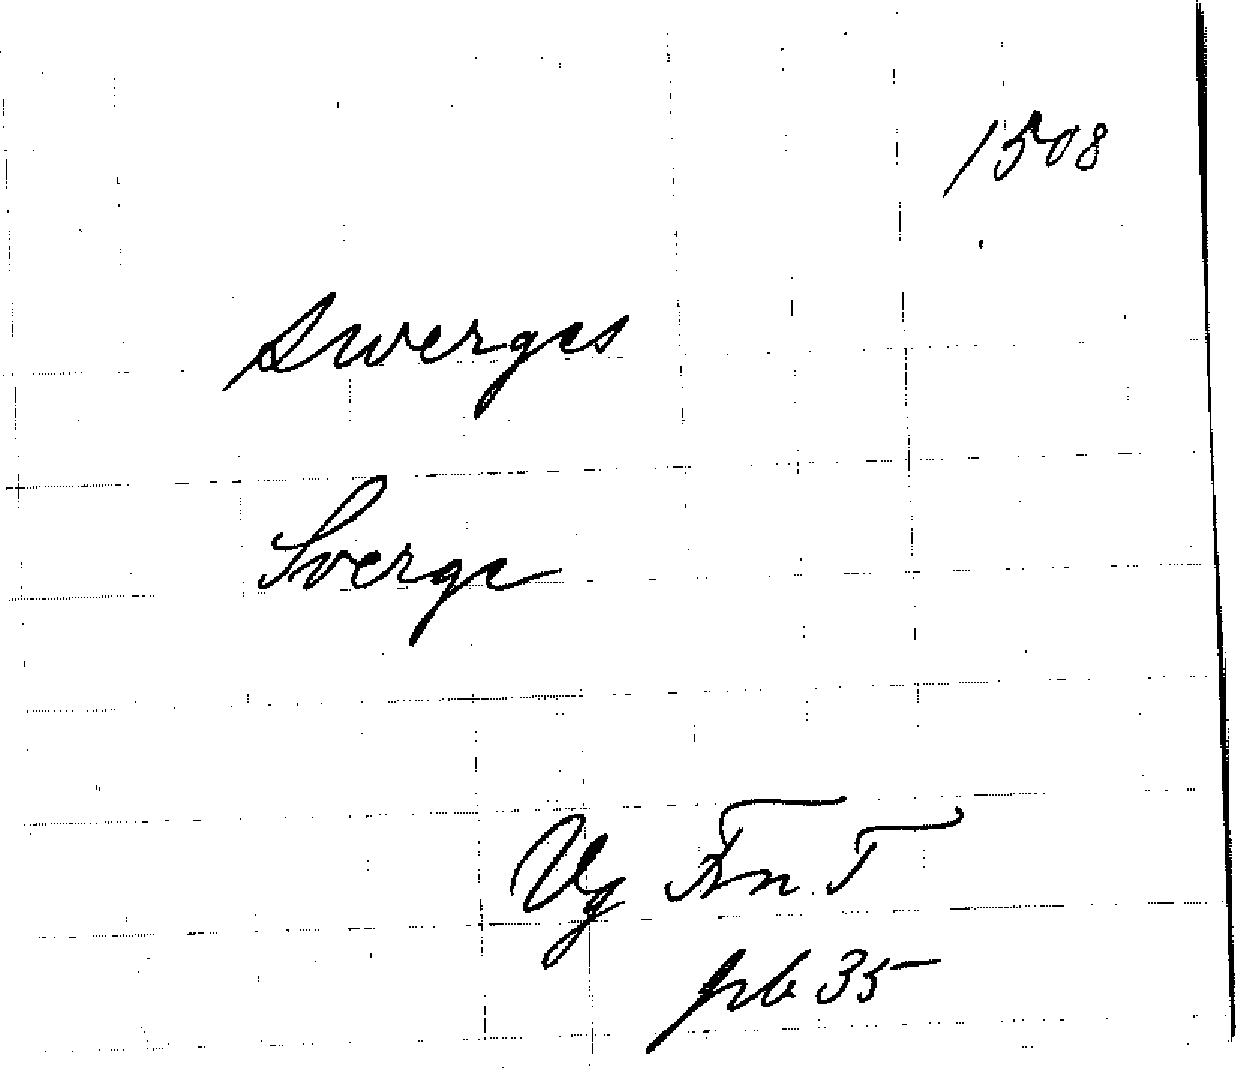 1508
Swerges
Sverge
Vg Fn. T
prb 35